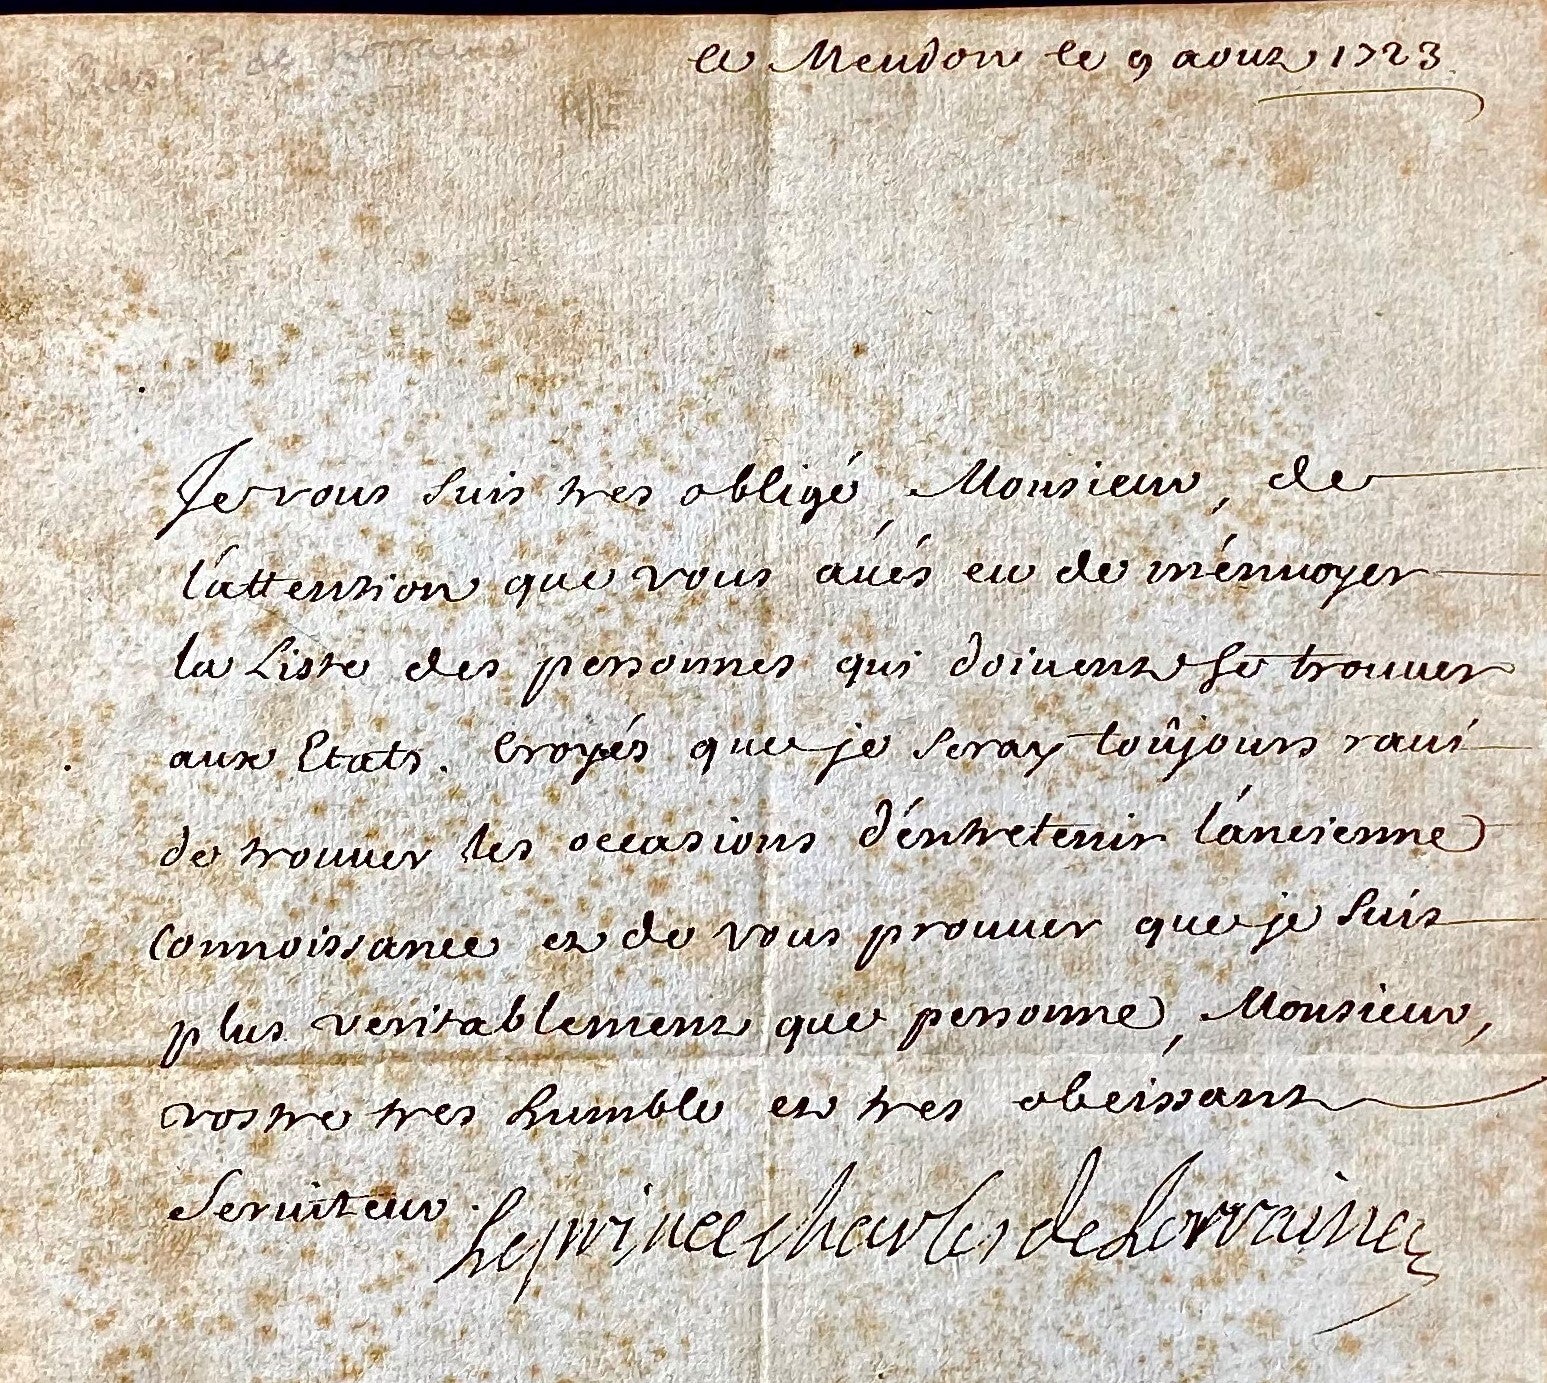 a Meudon le 9 aoust 1723
Je vous suis tres obligé, Monsieur, de
l'attention que vous avés eu de m'énuoyer
la Liste des personnes qui doiuent se trouuer
aux Etats. Croyés que je seray toûjours raui
de trouuer les occasions d'éntretenir l'áncienne
connoissance et de vous prouuer que je suis
plus veritablement que personne, Monsieur,
vostre tres humble et tres obeissant
seruiteur. Le prince charles de Lorraine